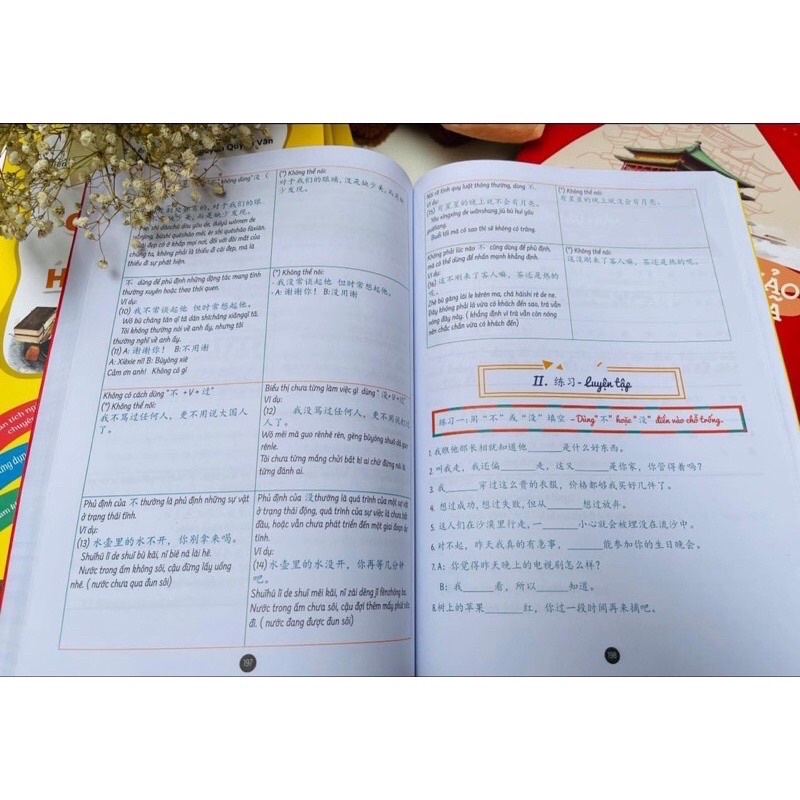 Quỳnh Vân
không dùng "没
对于我们的眼睛,不是缺少美,而是缺少发现。
đẹp có ở khắp mọi nơi, đối với đôi mắt của
chúng ta, không phải là thiếu đi cái đẹp, mà là
thiếu đi sự phát hiện.
(*) Không thể nói:
对于我们的眼睛,没是缺少美,而是缺
少发现。
不 dùng để phủ định những động tác mang tính
thường xuyên hoặc theo thói quen.
Ví dụ:
(10) 我不常谈起他 但时常想起他。
Wǒ bù cháng tán qǐ tā dàn shícháng xiǎngqǐ tā.
Tôi không thường nói về anh ấy, nhưng tôi
thường nghĩ về anh ấy.
(11) A: 谢谢你! B:不用谢
A: Xièxie nǐ! B: Bùyòng xiè
Cảm ơn anh! Không có gì
(*) Không thể nói:
- 我没常谈起他 但时常想起他。
- A: 谢谢你! B:没用谢
Không có cách dùng "不 +V+过"
(*) Không thể nói:
我不骂过任何人,更不用说大国人
了。
Biểu thị chưa từng làm việc gì dùng "没+V+过"
Ví dụ:
(12) 我没骂过任何人,更不用说打过
人了。
Wǒ méi mà guo rènhé rén, gèng bùyòng shuō dǎ guo
rénle.
Tôi chưa từng mắng chửi bất kì ai chứ đừng nói là
từng đánh ai.
Phủ định của 不 thường là phủ định những sự vật
ở trạng thái tĩnh.
Ví dụ:
(13) 水壶里的水不开,你别拿来喝。
Shuǐhú lǐ de shuǐ bù kāi, nǐ bié ná lái hē.
Nước trong ấm không sôi, cậu đừng lấy uống
nhé. ( nước chưa qua đun sôi)
Phủ định của 没 thường là quá trình của một sự vật
ở trạng thái động, quá trình của sự việc là chưa bắt
đầu, hoặc vẫn chưa phát triển đến một giai đoạn xác
định.
Ví dụ:
(14) 水壶里的水没开,你再等几分钟
吧。
Shuǐhú lǐ de shuǐ méi kāi, nǐ zài děng jǐ fēnzhōng ba.
Nước trong ấm chưa sôi, cậu đợi thêm mấy phút nữa
đi. ( nước đang được đun sôi)
197
Nói về tính quy luật thông thường, dùng 不.
Ví dụ:
(15) 有星星的晚上就不会有月亮。
Yǒu xīngxing de wǎnshang jiù bù huì yǒu
yuèliang.
Buổi tối mà có sao thì sẽ không có trăng.
(*) Không thể nói:
有星星的晚上就没会有月亮。
Không phải lúc nào 不 cũng dùng để phủ định,
mà có thể dùng để nhấn mạnh khẳng định.
Ví dụ:
(16) 这不刚来了客人嘛,茶还是热的
呢。
Zhè bù gāng lái le kèrén ma, chá háishi rè de ne.
Đây không phải là vừa có khách đến sao, trà vẫn
nóng đây này. ( khẳng định vì trà vẫn còn nóng
nên chắc chắn vừa có khách đến)
(*) Không thể nói:
这没刚来了客人嘛,茶还是热的呢。
II. 练习 - Luyện tập
练习一:用 "不" 或 "没" 填空 - Dùng "不" hoặc "没" điền vào chỗ trống.
1. 我瞧他那长相就知道他______是什么好东西。
2. 叫我走,我还偏______走,这又______是你家,你管得着吗?
3. 我______穿过这么贵的衣服,价格都够我买好几件了。
4. 想过成功,想过失败,但从______想过放弃。
5. 这人们在沙漠里行走,一______小心就会被埋没在流沙中。
6. 对不起,昨天我真的有急事,______能参加你的生日晚会。
7. A: 你觉得昨天晚上的电视剧怎么样?
B: 我______看,所以______知道。
8. 树上的苹果______红,你过一段时间再来摘吧。
198